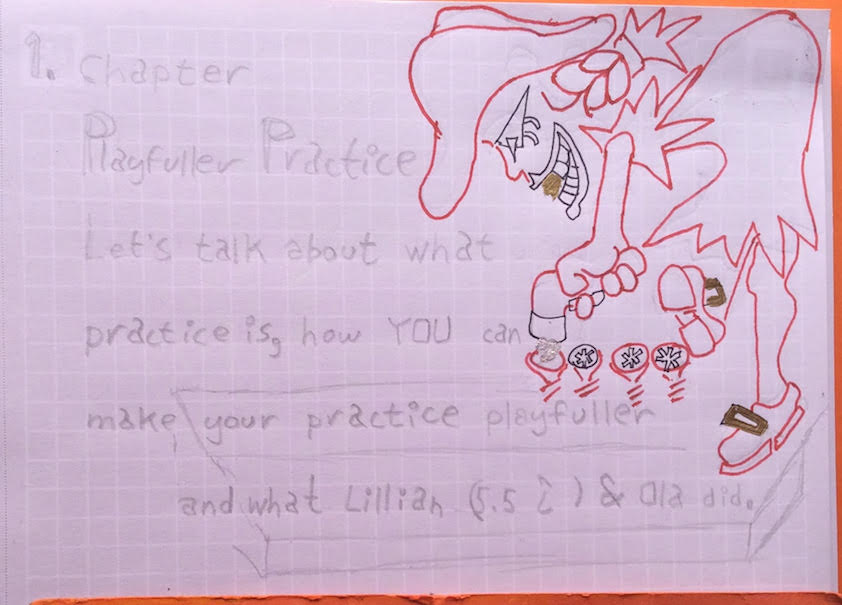 1. Chapter
Playfuller Practice
Let's talk about what
practice is, how YOU can
make your practice playfuller
and what Lillian (5.5 ) & Ola did.